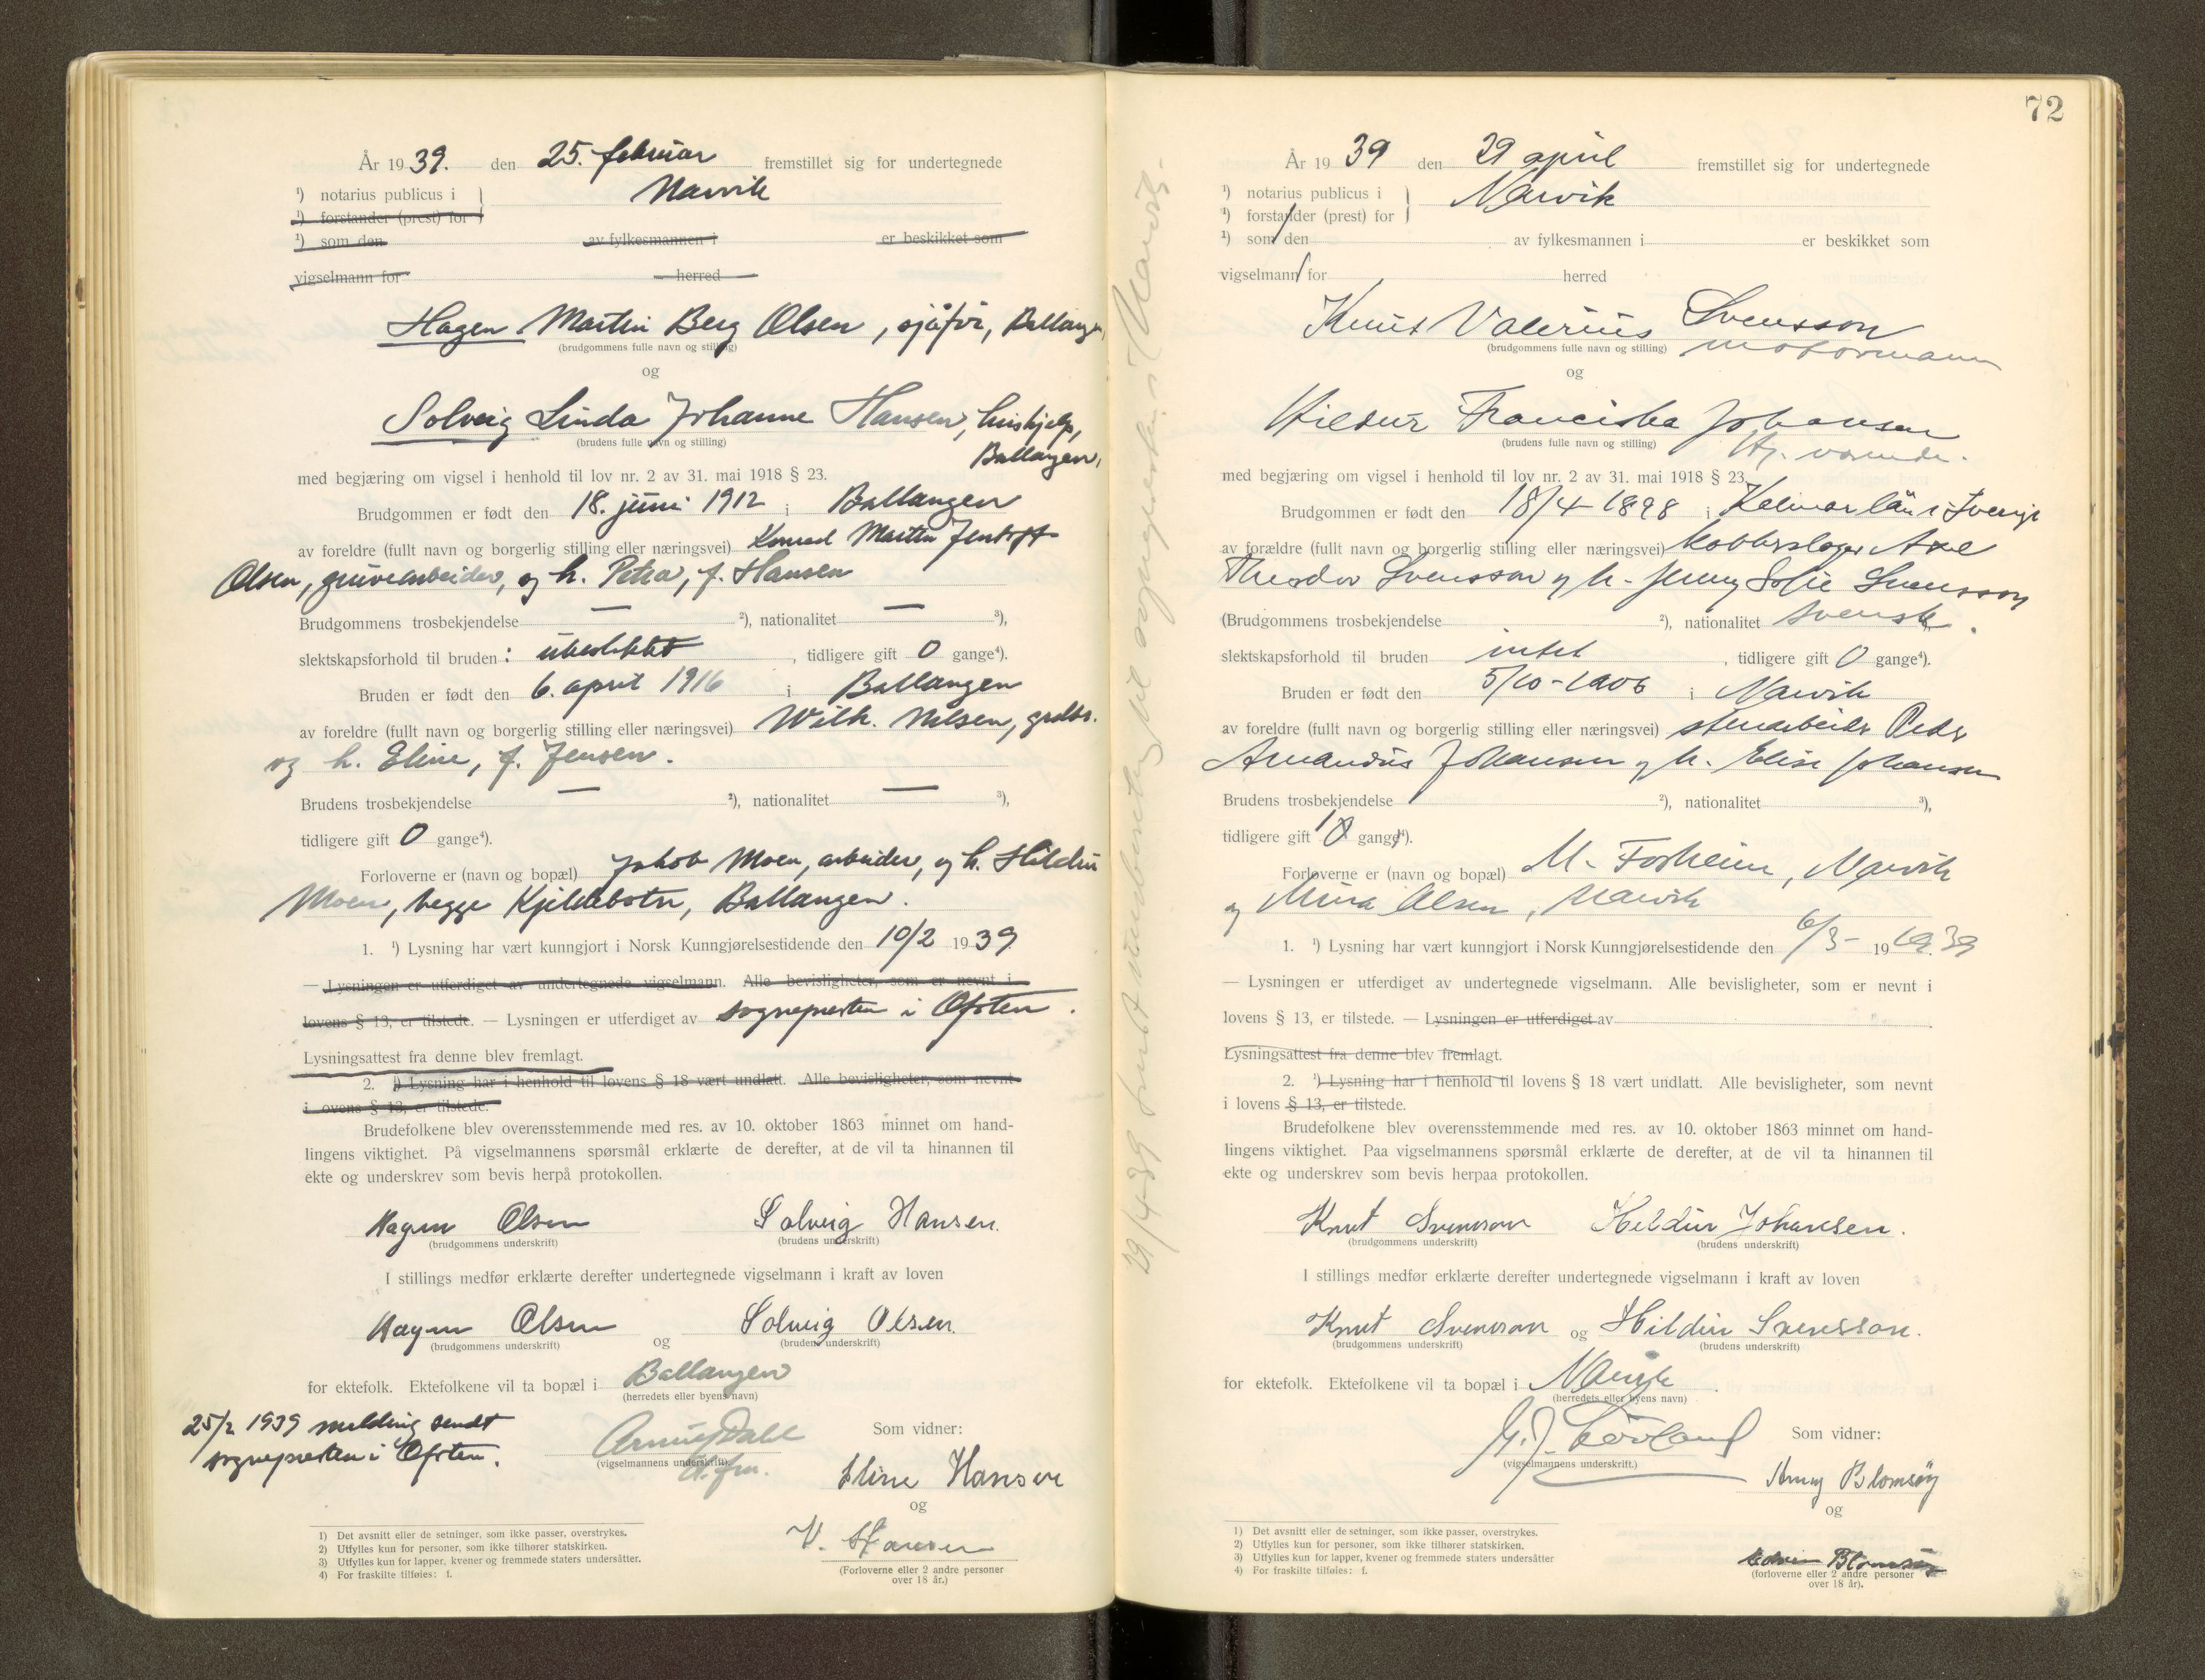 År 1939. den 25. februar fremstillet sig for undertegnede
¹) notarius publicus i Narvik
¹) forstander (prest) for
¹) som den av fylkesmannen i er beskikket som
vigselmann for herred
Hagen Martin Berg Olsen, sjåfør, Ballangen,
(brudgommens fulle navn og stilling)
og
Solveig Linda Johanne Hansen, hushjelp,
(brudens fulle navn og stilling)
Ballangen,
med begjæring om vigsel i henhold til lov nr. 2 av 31. mai 1918 § 23.
Brudgommen er født den 18. juni 1912 i Ballangen
av foreldre (fullt navn og borgerlig stilling eller næringsvei) Konrad Martin Jentoft
Olsen, gruvearbeider, og h. Petra, f. Hansen
Brudgommens trosbekjendelse — ²), nationalitet — ³),
slektskapsforhold til bruden: ubeslektet, tidligere gift 0 gange⁴).
Bruden er født den 6. april 1916 i Ballangen
av foreldre (fullt navn og borgerlig stilling eller næringsvei) Wilh. Nilsen, grdbr.
og h. Eline, f. Jensen.
Brudens trosbekjendelse — ²), nationalitet — ³),
tidligere gift 0 gange⁴).
Forloverne er (navn og bopæl) Jakob Moen, arbeider, og h. Hildur
Moen, begge Kjeldebotn, Ballangen.
1. ¹) Lysning har vært kunngjort i Norsk Kunngjørelsestidende den 10/2 1939
— Lysningen er utferdiget av undertegnede vigselmann. Alle bevisligheter, som er nevnt i
lovens § 13, er tilstede. — Lysningen er utferdiget av sogneprsten i Ofoten.
Lysningsattest fra denne blev fremlagt.
2. ¹) Lysning har i henhold til lovens § 18 vært undlatt. Alle bevisligheter, som nevnt
i lovens § 13, er tilstede.
Brudefolkene blev overensstemmende med res. av 10. oktober 1863 minnet om hand-
lingens viktighet. På vigselmannens spørsmål erklærte de derefter, at de vil ta hinannen til
ekte og underskrev som bevis herpå protokollen.
Hagen Olsen Solveig Hansen.
(brudgommens underskrift) (brudens underskrift)
I stillings medfør erklærte derefter undertegnede vigselmann i kraft av loven
Hagen Olsen og Solveig Olsen.
(brudgommens underskrift) (brudens underskrift)
for ektefolk. Ektefolkene vil ta bopæl i Ballangen
(herredets eller byens navn)
25/2 1939 melding sendt
sognepresten i Ofoten.
Dahl
(vigselmannens underskrift)
Som vidner:
Eline Hansen
og
V. Hansen
(Forloverne eller 2 andre personer
over 18 år.)
1) Det avsnitt eller de setninger, som ikke passer, overstrykes.
2) Utfylles kun for personer, som ikke tilhører statskirken.
3) Utfylles kun for lapper, kvener og fremmede staters undersåtter.
4) For fraskilte tilføies: f.
29/4 39 sendt til sognepresten i Narvik.
72
År 1939 den 29 april fremstillet sig for undertegnede
¹) notarius publicus i Narvik
¹) forstander (prest) for
¹) som den av fylkesmannen i er beskikket som
vigselmann for herred
Knut Valerius Svensson
(brudgommens fulle navn og stilling) motormann
og
Hildur Franciska Johansen
(brudens fulle navn og stilling) Hj. værende.
med begjæring om vigsel i henhold til lov nr. 2 av 31. mai 1918 § 23.
Brudgommen er født den 18/4 1898 i Kalmar län i Sverige
av forældre (fullt navn og borgerlig stilling eller næringsvei) kobberslager Axel
Theodor Svensson og h. Jenny Sofie Svensson
(Brudgommens trosbekjendelse ²), nationalitet svensk.
slektskapsforhold til bruden intet, tidligere gift 0 gange⁴).
Bruden er født den 5/10-1906 i Narvik
av foreldre (fullt navn og borgerlig stilling eller næringsvei) stenarbeider Peder
Amandus Johansen og h. Elise Johansen
Brudens trosbekjendelse ²), nationalitet ³),
tidligere gift 10 gange⁴).
Forloverne er (navn og bopæl) M. Forheim, Narvik
og Mina Olsen, Narvik
1. ¹) Lysning har vært kunngjort i Norsk Kunngjørelsestidende den 6/3- 19 39
— Lysningen er utferdiget av undertegnede vigselmann. Alle bevisligheter, som er nevnt i
lovens § 13, er tilstede. — Lysningen er utferdiget av
Lysningsattest fra denne blev fremlagt.
2. ¹) Lysning har i henhold til lovens § 18 vært undlatt. Alle bevisligheter, som nevnt
i lovens § 13, er tilstede.
Brudefolkene blev overensstemmende med res. av 10. oktober 1863 minnet om hand-
lingens viktighet. Paa vigselmannens spørsmål erklærte de derefter, at de vil ta hinannen til
ekte og underskrev som bevis herpaa protokollen.
Knut Svensson Hildur Johansen.
(brudgommens underskrift) (brudens underskrift)
I stillings medfør erklærte derefter undertegnede vigselmann i kraft av loven
Knut Svensson og Hildur Svensson.
(brudgommens underskrift) (brudens underskrift)
for ektefolk. Ektefolkene vil ta bopæl i Narvik.
(herredets eller byens navn)
(vigselmannens underskrift.)
Som vidner:
Blomsøy
og
Edvin Blomsøy
(forloverne eller 2 andre personer
over 18 år).
1) Det avsnitt eller de setninger, som ikke passer, overstrykes.
2) Utfylles kun for personer, som ikke tilhører statskirken.
3) Utfylles kun for lapper, kvener og fremmede staters undersåtter
4) For fraskilte tilføies: f.